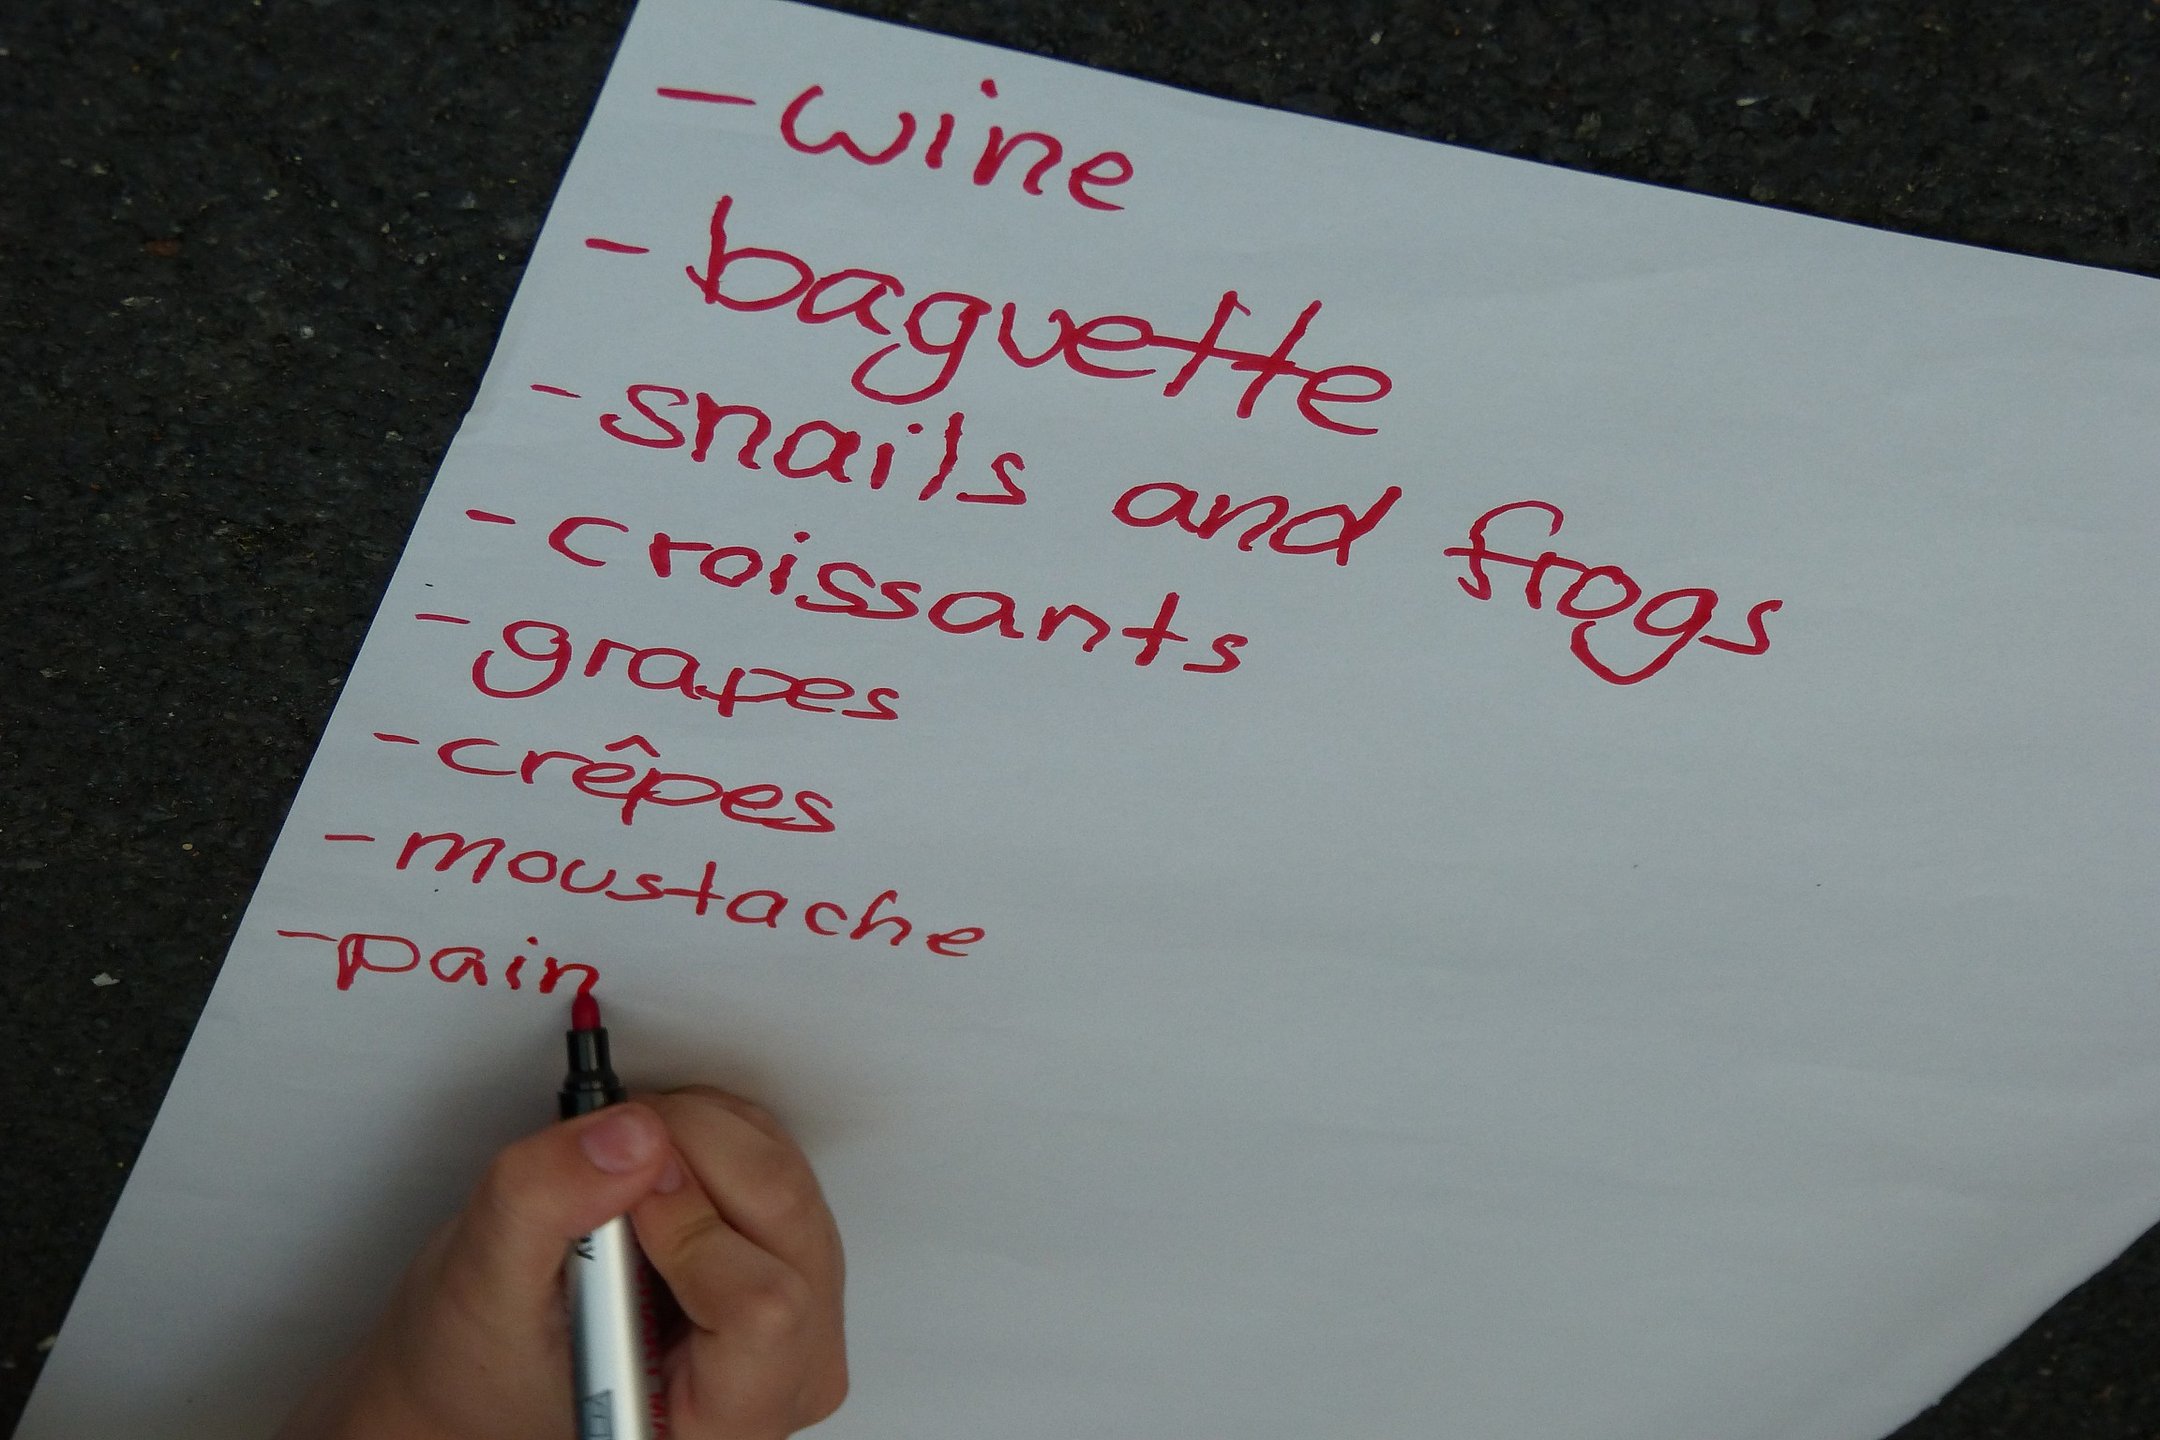 - wine
- baguette
- snails and frogs
- croissants
- grapes
- crêpes
- moustache
- pain